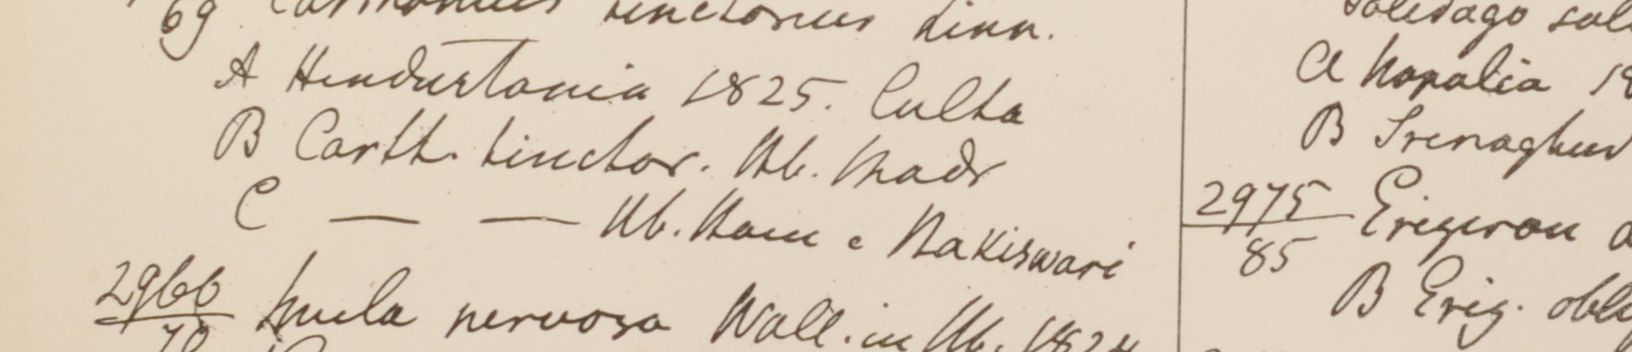 69 Carthamus tinctorius Linn.
A Hindustania 1825. Culta
B Carth. tinctor. Hb. Madr
C — — Hb. Ham e Nakiswari
2966
70 Inula nervosa Wall. in Hb. 1824
Solidago
a Napalia
B Srenaghur
2975 Erigeron
85
B Erig.